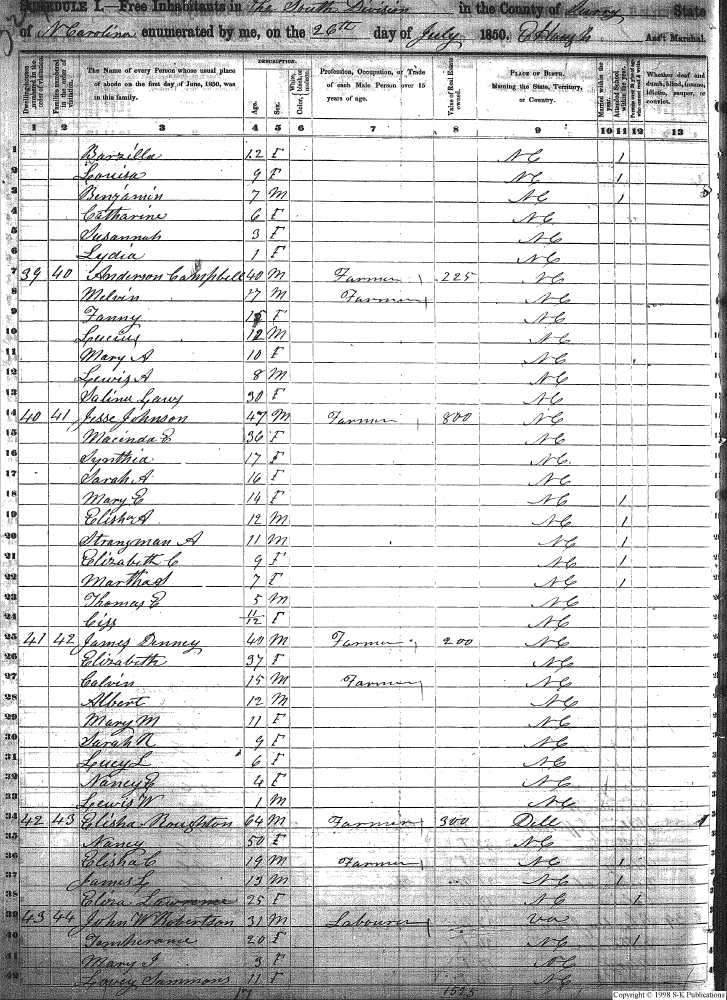 SCHEDULE I.—Free Inhabitants in The South Division in the County of Surry State
of N Carolina enumerated by me, on the 26th day of July 1850. Ass't Marshal.
Dwelling-houses numbered in the order of visitation. Families numbered in the order of visitation. The Name of every Person whose usual place of abode on the first day of June, 1850, was in this family. DESCRIPTION. Age. Sex. White, black, or mulatto. Color Profession, Occupation, or Trade of each Male Person over 15 years of age. Value of Real Estate owned. PLACE OF BIRTH. Naming the State, Territory, or Country. Married within the year. Attended School within the year. Whether deaf and dumb, blind, insane, idiotic, pauper, or convict.
1 2 3 4 5 6 7 8 9 10 11 12 13
1 Barzilla 12 F NC 1
2 Louisa 9 F NC 1
3 Benjamin 7 M NC 1
4 Catharine 6 F NC
5 Susannah 3 F NC
6 Lydia 1 F NC
7 39 40 Anderson Campbell 40 M Farmer 225 NC
8 Melvin 17 M Farmer NC
9 Fanny 15 F NC
10 Lucius 12 M NC
11 Mary A 10 F NC
12 Lewis A 8 M NC
13 30 F NC
14 40 41 Jesse Johnson 47 M Farmer 800 NC
15 Macinda E 36 F NC
16 Synthia 17 F NC
17 Sarah A 16 F NC
18 Mary E 14 F NC 1
19 Elisha A 12 M NC 1
20 Strangman A 11 M NC 1
21 Elizabeth C 9 F NC 1
22 Martha 7 F NC 1
23 Thomas E 5 M NC
24 Ciss 11/12 F NC
25 41 42 James Denney 40 M Farmer 200 NC
26 Elizabeth 37 F NC
27 Calvin 15 M Farmer NC
28 Albert 12 M NC
29 Mary M 11 F NC
30 Sarah N 9 F NC
31 Lucy L 6 F NC
32 Nancy E 4 F NC
33 Lewis W 1 M NC
34 42 43 Elisha Roughton 64 M Farmer 300 Dell
35 Nancy 50 F NC
36 Elisha C 19 M Farmer NC 1
37 James L 13 M NC 1
38 Elvira Lawrance 25 F NC 1
39 43 44 John W Robertson 31 M Labourer Va
40 Temperance 20 F NC 1
41 Mary J 3 F NC
42 Lovey Sammons 11 F NC
17 1525
Copyright © 1998 S-K Publications